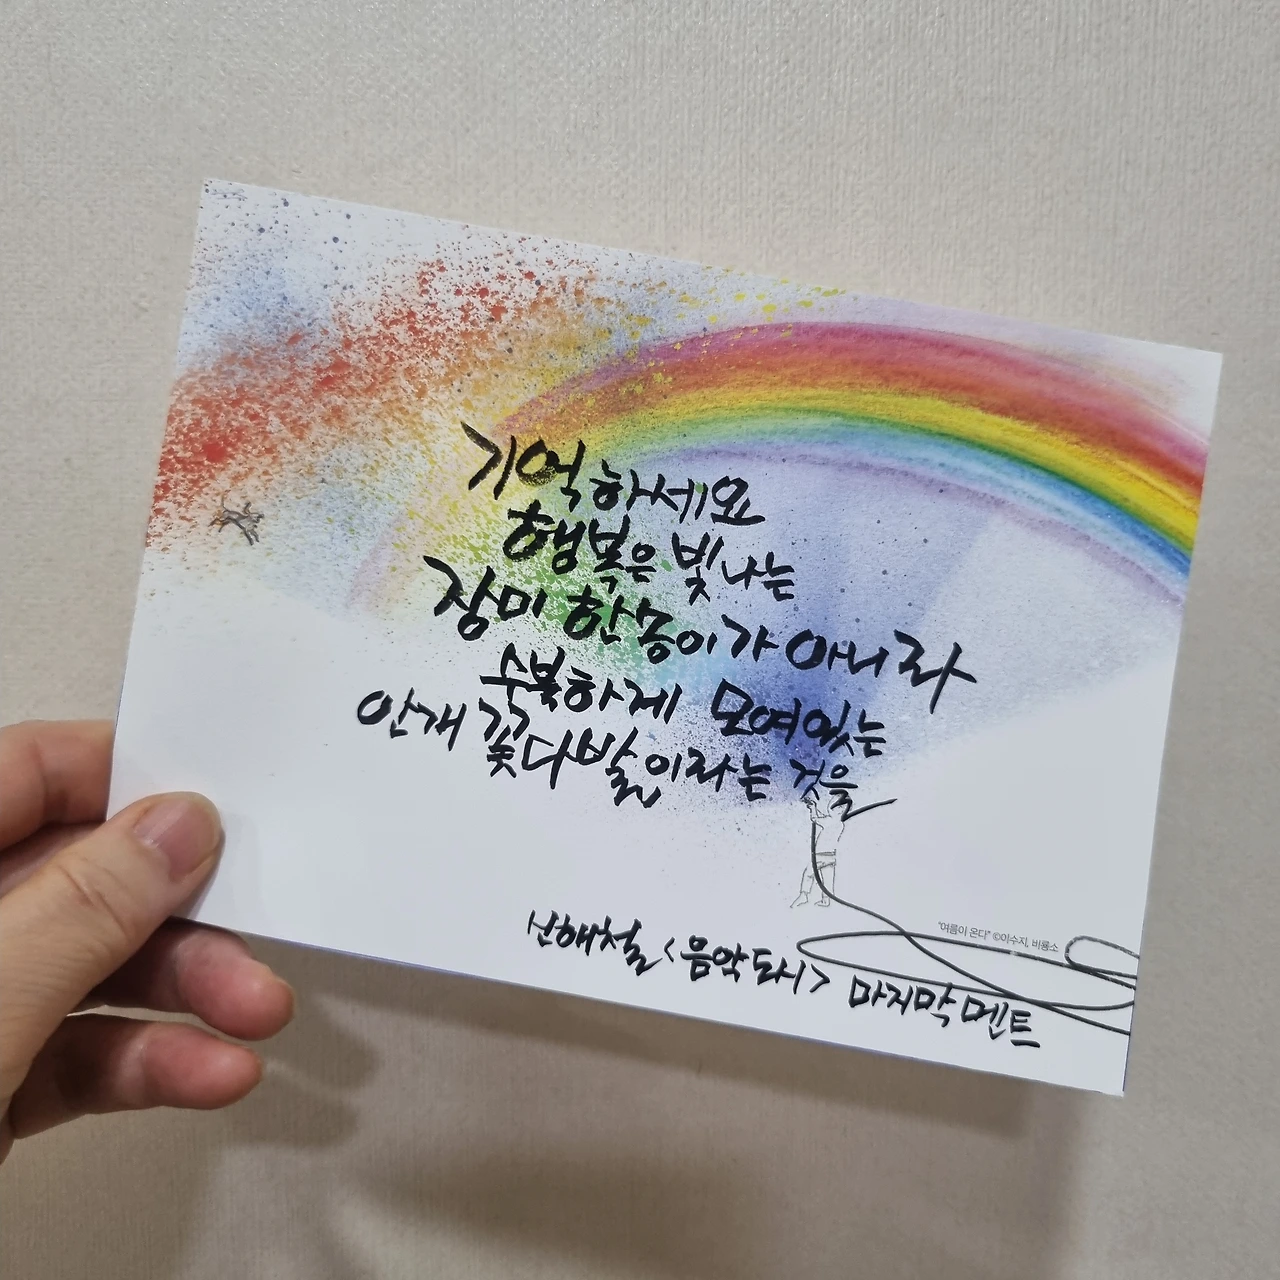 기억하세요
행복은 빛나는
장미 한송이가 아니라
수북하게 모여있는
안개 꽃다발이라는 것을
"여름이 온다" ©이수지, 비룡소
신해철 <음악도시> 마지막 멘트